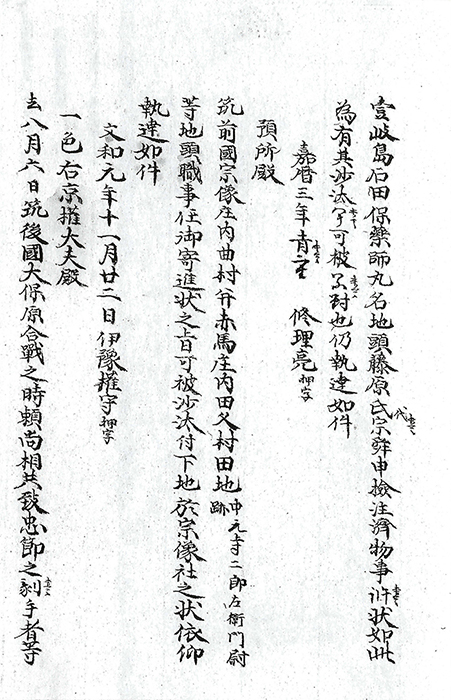 壹岐島石田保藥師丸名地頭藤原氏代宗舜申檢注濟物事訴状如此
為有其沙汰可被封也仍執達如件
嘉暦三年 修理亮押字
預所殿
筑前國宗像庄内曲村并赤馬庄内田久村田地 跡
等地頭職事任御寄進状之旨可被沙汰付下地於宗像社之状依仰
執達如件
文和元年十一月廿二日伊豫權守押字
一色右京權大夫殿
去八月六日筑後國大保原合戰之時頼尚相共致忠節之刻手者等